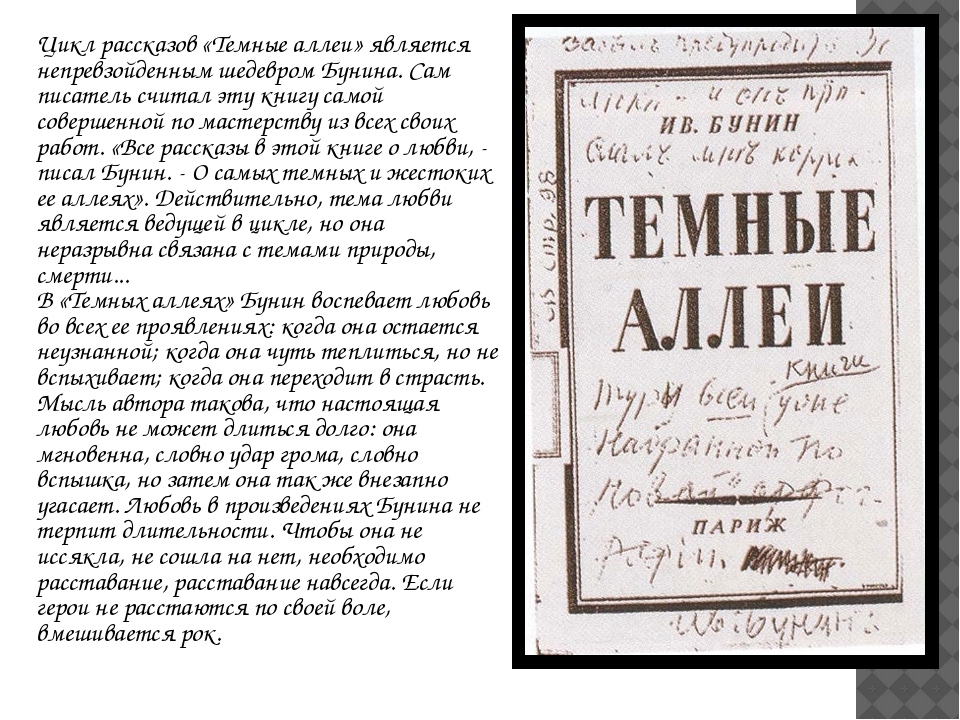 Цикл рассказов «Темные аллеи» является
непревзойденным шедевром Бунина. Сам
писатель считал эту книгу самой
совершенной по мастерству из всех своих
работ. «Все рассказы в этой книге о любви, -
писал Бунин. - О самых темных и жестоких
ее аллеях». Действительно, тема любви
является ведущей в цикле, но она
неразрывна связана с темами природы,
смерти...
В «Темных аллеях» Бунин воспевает любовь
во всех ее проявлениях: когда она остается
неузнанной; когда она чуть теплиться, но не
вспыхивает; когда она переходит в страсть.
Мысль автора такова, что настоящая
любовь не может длиться долго: она
мгновенна, словно удар грома, словно
вспышка, но затем она так же внезапно
угасает. Любовь в произведениях Бунина не
терпит длительности. Чтобы она не
иссякла, не сошла на нет, необходимо
расставание, расставание навсегда. Если
герои не расстаются по своей воле,
вмешивается рок.
и онъ
ИВ. БУНИН
мнъ
стр. 98
ТЕМНЫЕ
АЛЛЕИ
книги
всей
по
ПАРИЖ